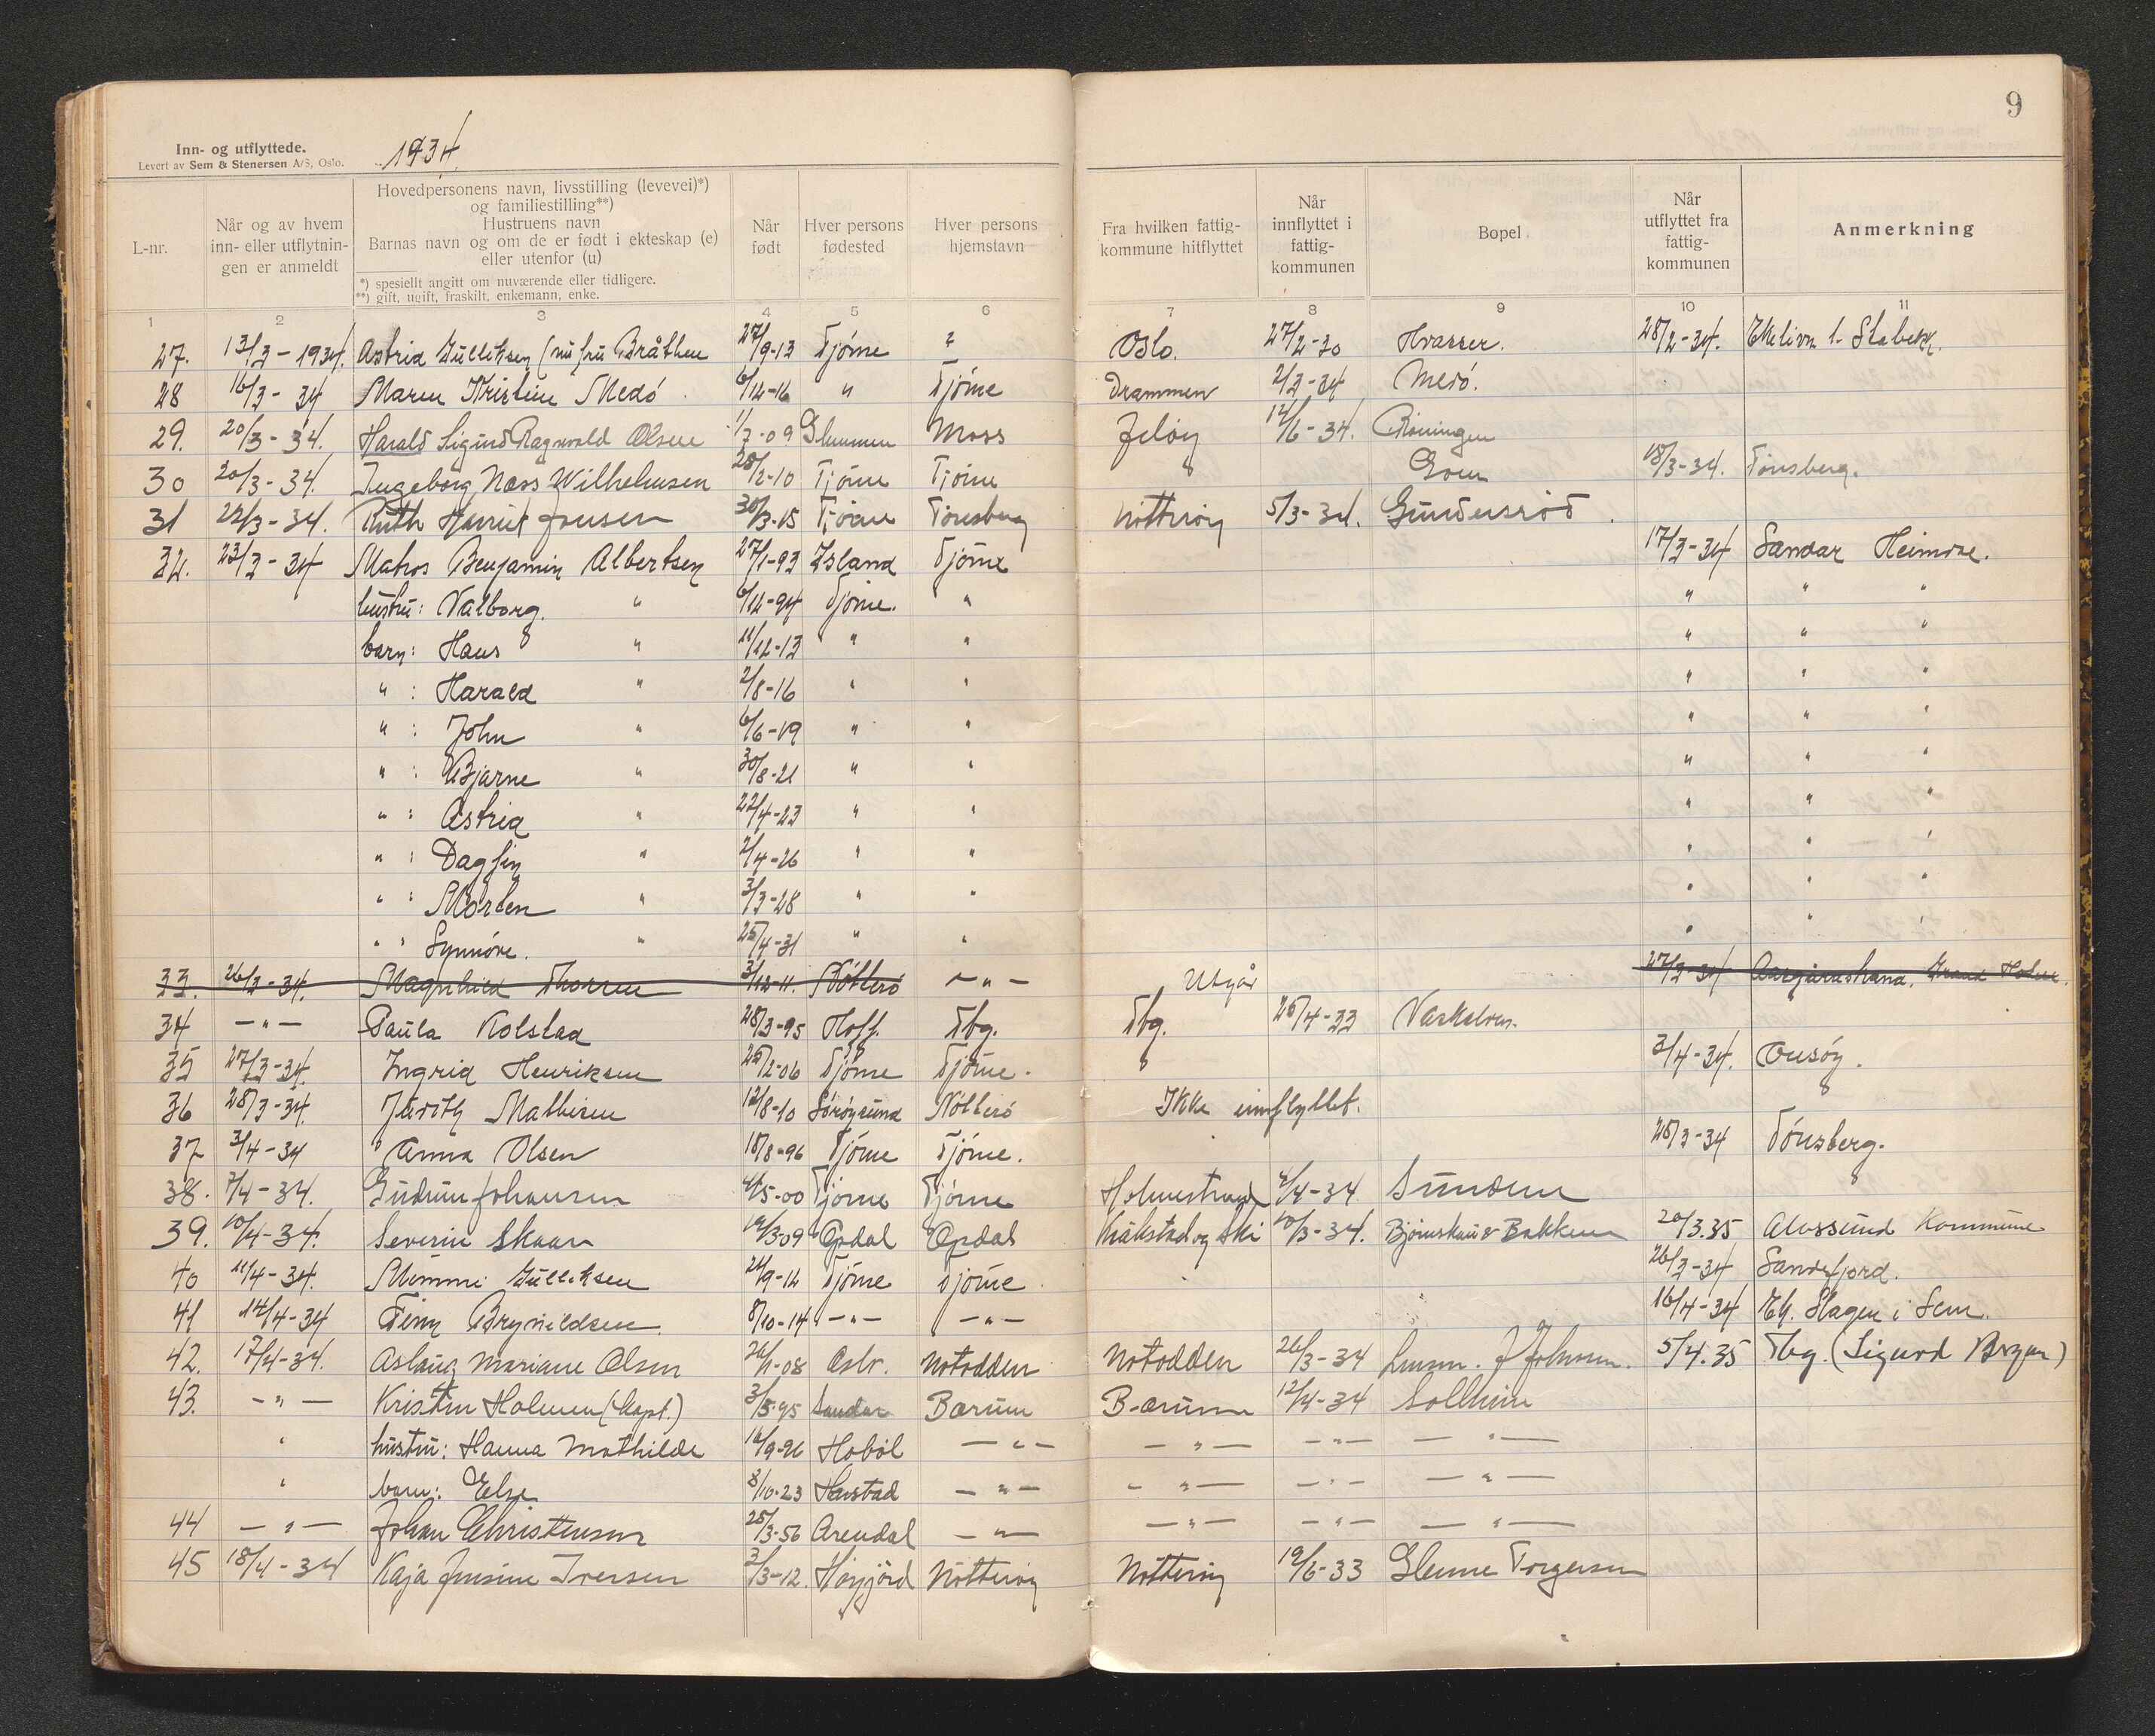 9
Inn- og utflyttede.
Levert av Sem & Stenersen A/S, Oslo.
1934
L-nr.
Når og av hvem inn- eller utflytnin-gen er anmeldt
Hovedpersonens navn, livsstilling (levevei)*) og familiestilling**)
Hustruens navn
Barnas navn og om de er født i ekteskap (e) eller utenfor (u)
*) spesiellt angitt om nuværende eller tidligere.
**) gift, ugift, fraskilt, enkemann, enke.
Når født
Hver persons fødested
Hver persons hjemstavn
Fra hvilken fattig-kommune hitflyttet
Når innflyttet i fattig-kommunen
Bopel
Når utflyttet fra fattig-kommunen
Anmerkning
1 2 3 4 5 6 7 8 9 10 11
27. 13/3-1934. Astrid Gulliksen (nu fru Bråthen 27/9-13 Tjøme ? Oslo. 27/2-30 Hvasser. 28/2-34. Stabekk.
28 16/3-34 Maren Kristine Medö 6/12-16 " Tjöme Drammen 2/3-34 Medö.
29. 20/3-34. Harald Sigurd Ragnvald Olsen 1/7-09 Glemmen Moss Jeløy 12/6-34. Röningen
30 20/3-34. Ingeborg Næss Wilhelmsen 28/2-10 Tjöme Tjöme 18/3-34. Tönsberg.
31 22/3-34. Ruth Harriet Jensen 30/3-15 Tjöme Tönsberg Nötteröy 5/3-34. Gundersröd
32. 23/3-34 Matros Benjamin Albertsen 27/1-93 Island Tjöme 17/3-34 Sandar Heimdal.
hustru: Valborg. " 6/12-94 Tjöme. " " " "
barn: Hans " 11/12-13 " " " " "
" : Harald " 2/8-16 " " " " "
" : John " 6/6-19 " " " " "
" : Bjarne " 30/8-21 " " " " "
" : Astrid " 22/4-23 " " " " "
" : Dagfin " 2/4-26 " " " " "
" : Morten " 3/3-28 " " " " "
" " Synnöve. " 25/4-31 " " " " "
33. 26/3-34. Magnhild Thorsen 3/12-11. Nötterö -"- Utgår 27/3-34 Aasgårdstrand.
34 -"- Paula Kolstad 28/3-95 Hoff. Tbg. Tbg. 26/4-33
35 27/3-34. Ingrid Henriksen 25/2-06 Tjöme Tjöme. 3/4-34. Onsöy.
36 28/3-34. Judith Mathisen 12/8-10 Söröysund Nötterö Ikke innflyttet.
37 3/4-34 Anna Olsen 18/8-96 Tjöme Tjöme. 28/3-34 Tönsberg.
38. 7/4-34. Gudrun Johansen 4/5-00 Tjöme Tjöme Holmestrand 4/4-34. Sunden
39. 10/4-34. Severin Skaar 19/3-09 Opdal Opdal Kråkstad og Ski 10/3-34. Bjørnskau & Bakken 20/3.35 Alvssund Kommune
40 11/4-34. Mimmi Gulliksen 24/9-12 Tjöme Tjöme 26/3-34 Sandefjord.
41 14/4-34 Finn Brynildsen. 8/10-14 -"- -"- 16/4-34 Slagen i Sem.
42. 17/4-34. Aslaug Mariane Olsen 26/1-08 Oslo. Notodden Notodden 26/3-34 J Johnsen. 5/4.35 Tbg. (Sigurd Bryn)
43. -"- Kristen Holmen (Kapt.) 3/5-95 Sandar Bærum Bærum 12/4-34 Solheim
" hustru: Hanna Mathilde 16/9-96 Hobøl -"- -"- -"- -"-
" barn: Else 8/10-23 -"- -"- -"- -"-
44 -"- Johan Christensen 25/3-56 Arendal -"- -"- -"- -"-
45 18/4-34 Kaja Jensine Iversen 3/3-12. Höyjord Nötteröy Nötteröy 19/6-33 Glenne Torgersen